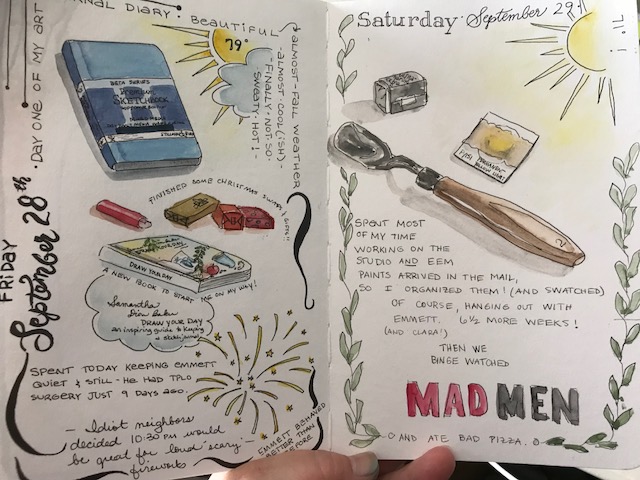 FRIDAY
September 28th
· DAY ONE OF MY ART
NAL DIARY ·
BEAUTIFUL
79°
-ALMOST-FALL WEATHER
-ALMOST-COOL(ISH)-
-FINALLY-NOT-SO-
SWEATY-HOT!-
BETA SERIES
SKETCHBOOK
FINISHED SOME CHRISTMAS
DRAW YOUR DAY
A NEW BOOK TO START ME ON MY WAY!
Samantha
Dion Baker
DRAW YOUR DAY
an inspiring guide to keeping
a sketch journal
SPENT TODAY KEEPING EMMETT
QUIET & STILL - HE HAD TPLO
SURGERY JUST 9 DAYS AGO
- Idiot neighbors
decided 10:30 PM would
be great for loud "scary"
fireworks -
EMMETT BEHAVED
BETTER THAN
BEFORE
Saturday · September 29th
71°!
SPENT MOST
OF MY TIME
WORKING ON THE
STUDIO AND EEM
PAINTS ARRIVED IN THE MAIL,
SO I ORGANIZED THEM! (AND SWATCHED)
OF COURSE, HANGING OUT WITH
EMMETT. 6½ MORE WEEKS!
(AND CLARA!)
THEN WE
BINGE WATCHED
MAD MEN
AND ATE BAD PIZZA.